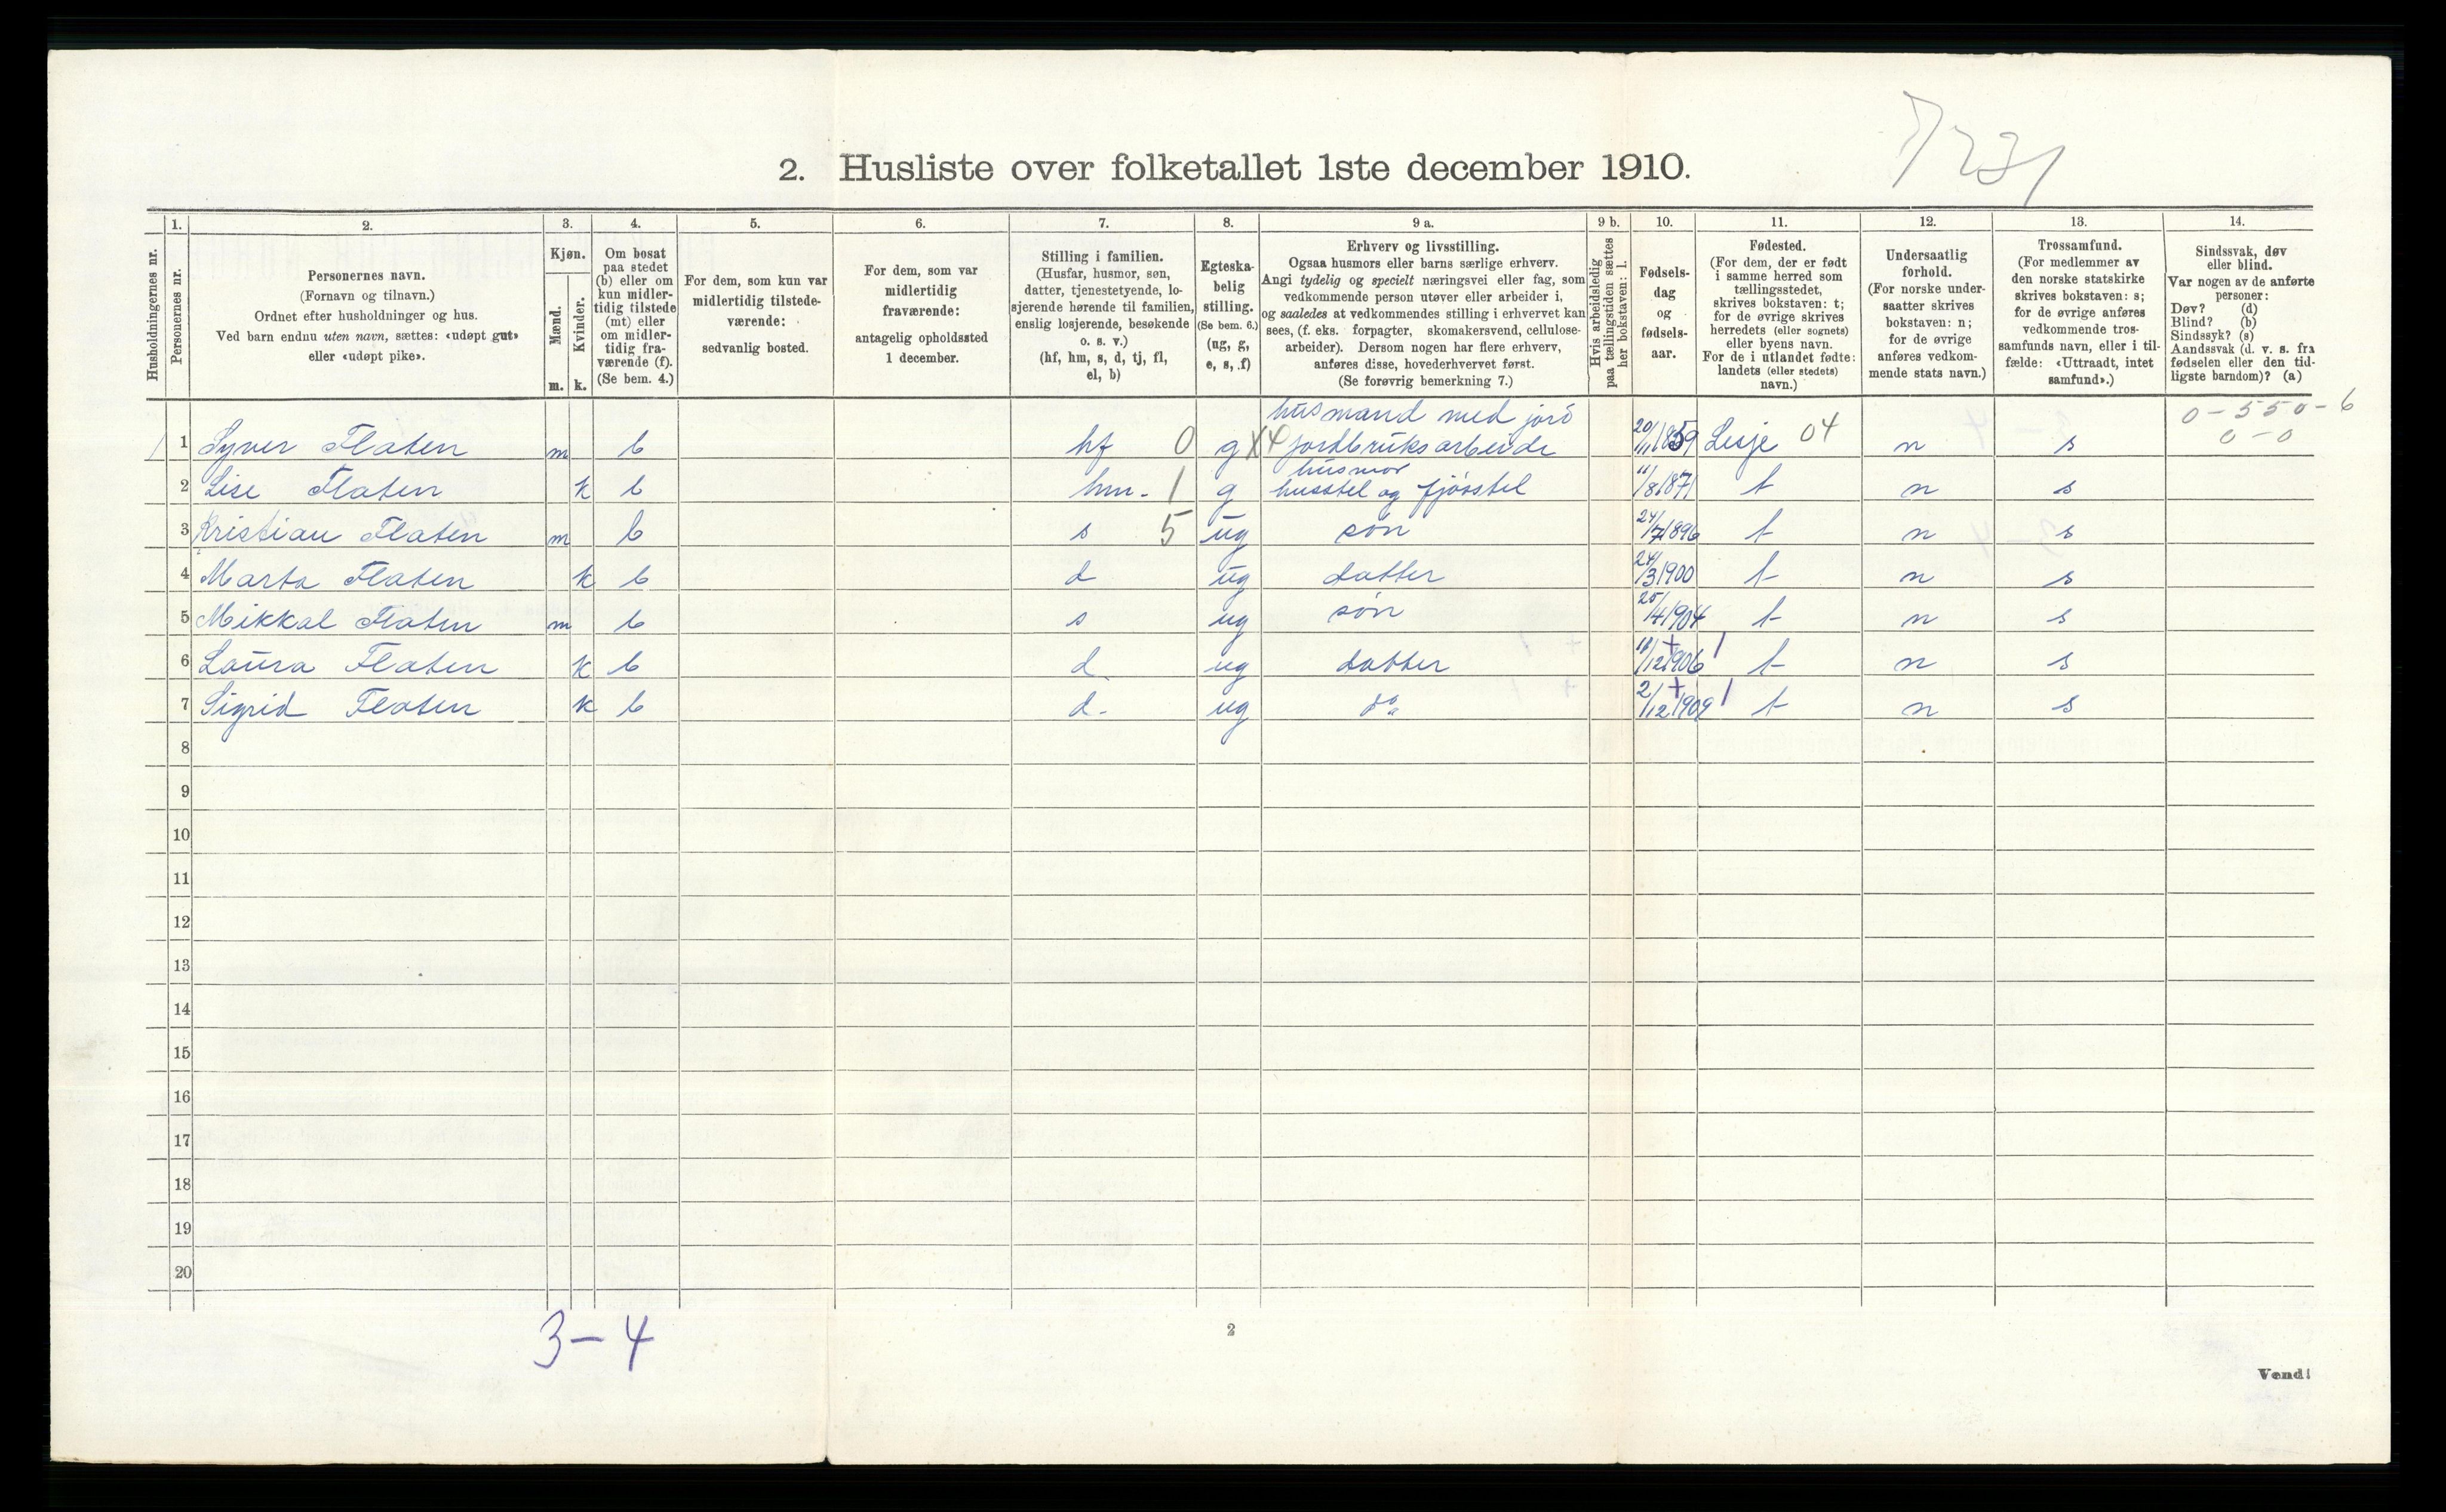 2. Husliste over folketallet 1ste december 1910.
Husholdningernes nr.
1.
Personernes nr.
2.
Personernes navn.
(Fornavn og tilnavn.)
Ordnet efter husholdninger og hus.
Ved barn endnu uten navn, sættes: «udøpt gut»
eller «udøpt pike».
3.
Kjøn.
Mænd.
Kvinder.
m. k.
4.
Om bosat
paa stedet
(b) eller om
kun midler-
tidig tilstede
(mt) eller
om midler-
tidig fra-
værende (f).
(Se bem. 4.)
5.
For dem, som kun var
midlertidig tilstede-
værende:
sedvanlig bosted.
6.
For dem, som var
midlertidig
fraværende:
antagelig opholdssted
1 december.
7.
Stilling i familien.
(Husfar, husmor, søn,
datter, tjenestetyende, lo-
sjerende hørende til familien,
enslig losjerende, besøkende
o. s. v.)
(hf, hm, s, d, tj, fl,
el, b)
8.
Egteska-
belig
stilling.
(Se bem. 6.)
(ug, g,
e, s, f)
9 a.
Erhverv og livsstilling.
Ogsaa husmors eller barns særlige erhverv.
Angi tydelig og specielt næringsvei eller fag, som
vedkommende person utøver eller arbeider i,
og saaledes at vedkommendes stilling i erhvervet kan
sees, (f. eks. forpagter, skomakersvend, cellulose-
arbeider). Dersom nogen har flere erhverv,
anføres disse, hovederhvervet først.
(Se forøvrig bemerkning 7.)
9 b.
Hvis arbeidsledig
paa tællingstiden sættes
her bokstaven: l.
10.
Fødsels-
dag
og
fødsels-
aar.
11.
Fødested.
(For dem, der er født
i samme herred som
tællingsstedet,
skrives bokstaven: t;
for de øvrige skrives
herredets (eller sognets)
eller byens navn.
For de i utlandet fødte:
landets (eller stedets)
navn.)
12.
Undersaatlig
forhold.
(For norske under-
saatter skrives
bokstaven: n;
for de øvrige
anføres vedkom-
mende stats navn.)
13.
Trossamfund.
(For medlemmer av
den norske statskirke
skrives bokstaven: s;
for de øvrige anføres
vedkommende tros-
samfunds navn, eller i til-
fælde: «Uttraadt, intet
samfund».)
14.
Sindssvak, døv
eller blind.
Var nogen av de anførte
personer:
Døv? (d)
Blind? (b)
Sindssyk? (s)
Aandssvak (d. v. s. fra
fødselen eller den tid-
ligste barndom)? (a)
husmand med jord 0-550-6
1 1 Syver Flaten m b hf 0 g X4 jordbruksarbeide 20/11 1859 Lesje 04 n s 0-0
husmor
2 Lise Flaten k b hm. 1 g husstel og fjøsstel 11/8 1871 t n s
3 Kristian Flaten m b s 5 ug søn 24/7 1896 t n s
4 Marta Flaten k b d ug datter 24/3 1900 t n s
5 Mikkal Flaten m b s ug søn 25/4 1904 t n s
6 Laura Flaten k b d. ug datter /12 1906 t n s
7 Sigrid Flaten k b d. ug do 2/12 1909 t n s
8
9
10
11
12
13
14
15
16
17
18
19
20
3-4
2
Vend!